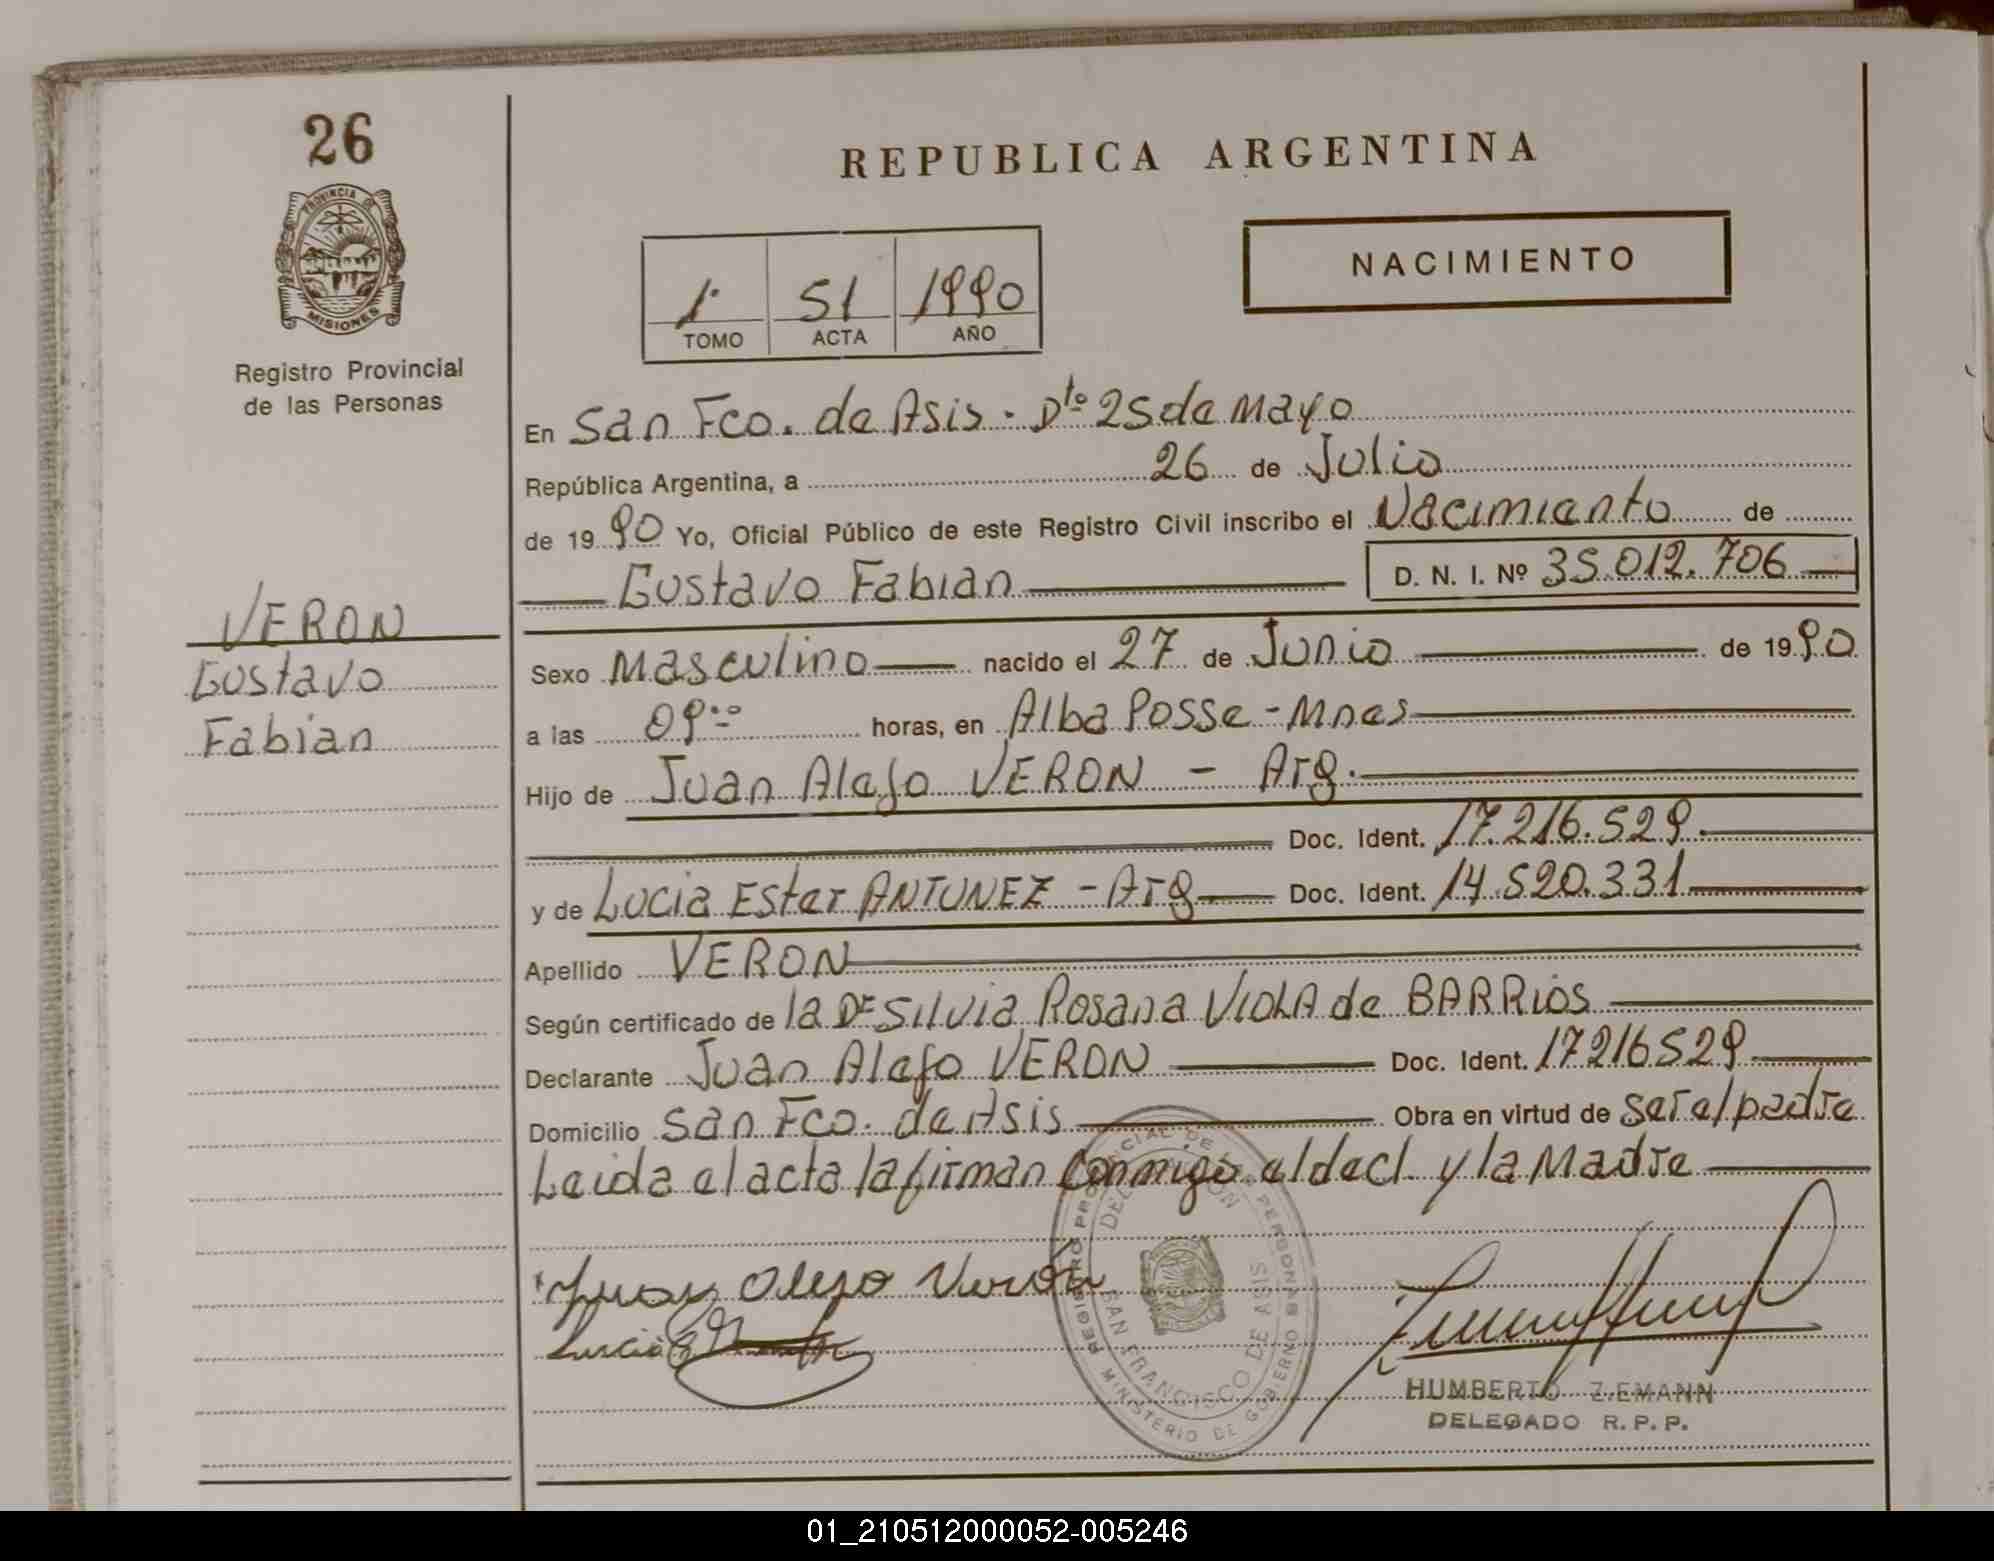 26
PROVINCIA DE
MISIONES
Registro Provincial
de las Personas
VERON
Gustavo
Fabian
REPUBLICA ARGENTINA
1º 51 1990
TOMO ACTA AÑO
NACIMIENTO
En San Fco. de Asis - Dto 25 de Mayo
República Argentina, a 26 de Julio
de 1990 Yo, Oficial Público de este Registro Civil inscribo el Nacimiento de
Gustavo Fabian D. N. I. Nº 35.012.706
Sexo Masculino nacido el 27 de Junio de 1990
a las 09:00 horas, en Alba Posse - Mnes
Hijo de Juan Alejo VERON - Arg.
Doc. Ident. 17.216.529
y de Lucia Ester ANTUNEZ - Arg Doc. Ident. 14.520.331
Apellido VERON
Según certificado de la Dra Silvia Rosana VIOLA de BARRIOS
Declarante Juan Alejo VERON Doc. Ident. 17216529
Domicilio San Fco. de Asis Obra en virtud de ser el padre
Leida el acta la firman conmigo el decl. y la Madre
Juan Alejo Verón
Lucia E
REGISTRO PROVINCIAL DE LAS PERSONAS
SAN FRANCISCO DE ASIS
MINISTERIO DE GOBIERNO
HUMBERTO ZIEMANN
DELEGADO R. P. P.
01_210512000052-005246